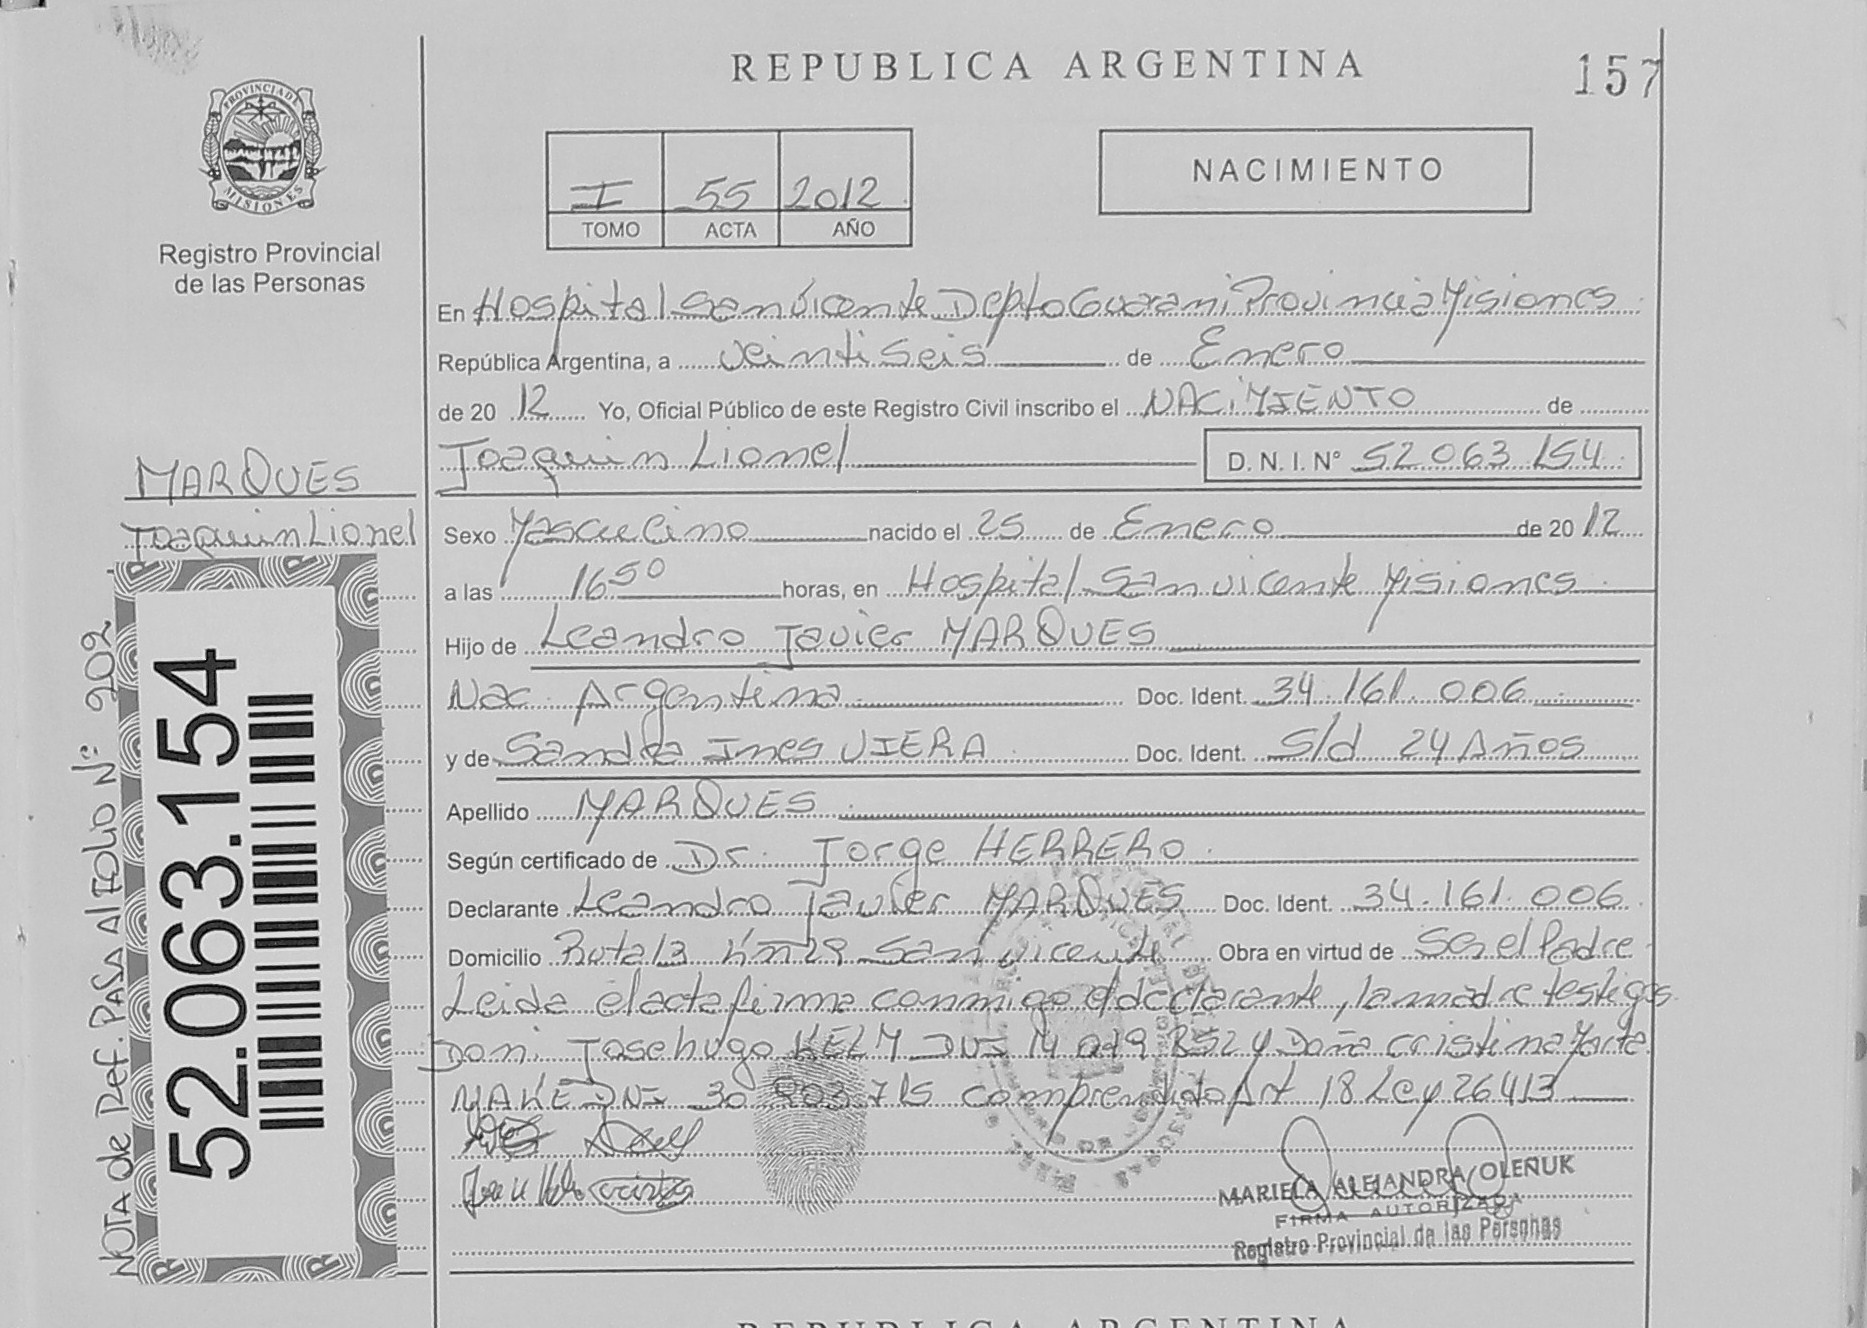 REPUBLICA ARGENTINA
157
PROVINCIA DE
MISIONES
Registro Provincial
de las Personas
I 55 2012
TOMO ACTA AÑO
NACIMIENTO
En Hospital San Vicente Depto Guarani Provincia Misiones
República Argentina, a veintiseis de Enero
de 20 12 Yo, Oficial Público de este Registro Civil inscribo el NACIMIENTO de
Joaquin Lionel D. N. I. N° 52.063.154
MARQUES
Joaquin Lionel
Sexo Masculino nacido el 25 de Enero de 20 12
a las 16 50 horas, en Hospital San Vicente Misiones
Hijo de Leandro Javier MARQUES
Nac. Argentina Doc. Ident. 34.161.006
y de Sandra Ines VIERA Doc. Ident. S/d 24 Años
Apellido MARQUES
Según certificado de Dr. Jorge HERRERO
Declarante Leandro Javier MARQUES Doc. Ident. 34.161.006
Domicilio Ruta 13 Km 29 San Vicente Obra en virtud de Ser el Padre
Leida el acta firma conmigo el declarante, la madre testigos
Don: Jose hugo KELM DNI 14 852 y Doña cristina
DNI 30 903 715 comprendido Art 18 Ley 26413
NOTA de Ref. PASA Al FOLIO Nº 202
52.063.154
MARIELA ALEJANDRA OLEÑUK
FIRMA AUTORIZADA
Registro Provincial de las Personas
REPUBLICA ARGENTINA